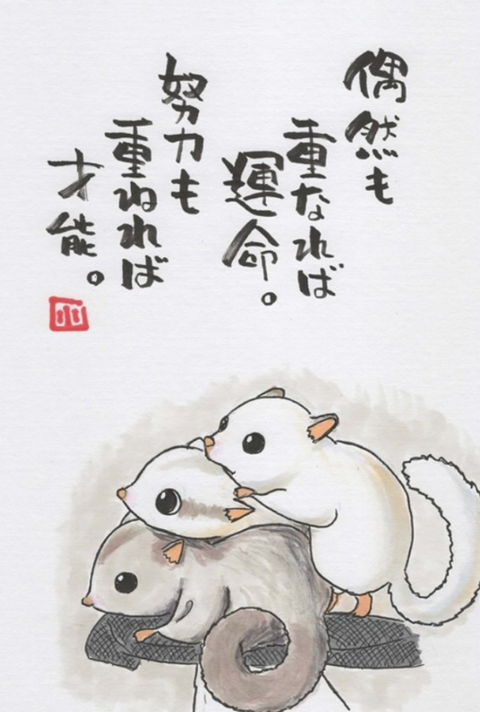 偶然も
重なれば
運命。
努力も
重ねれば
才能。
小